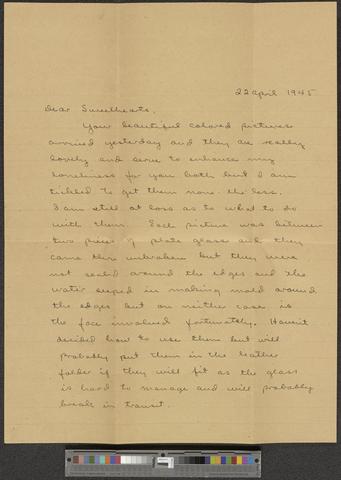 22 April 1945
Dear Sweethearts,
Your beautiful colored pictures
arrived yesterday and they are really
lovely and serve to enhance my
loneliness for you both but I am
tickled to get them none-the-less.
I am still at loss as to what to do
with them. Each picture was between
two pieces of plate glass and they
came thru unbroken but they were
not seal'd around the edges and the
water seeped in making mold around
the edges but on neither case is
the face involved fortunately. Haven't
decided how to use them but will
probably put them in the leather
folder if they will fit as the glass
is hard to manage and will probably
break in transit.